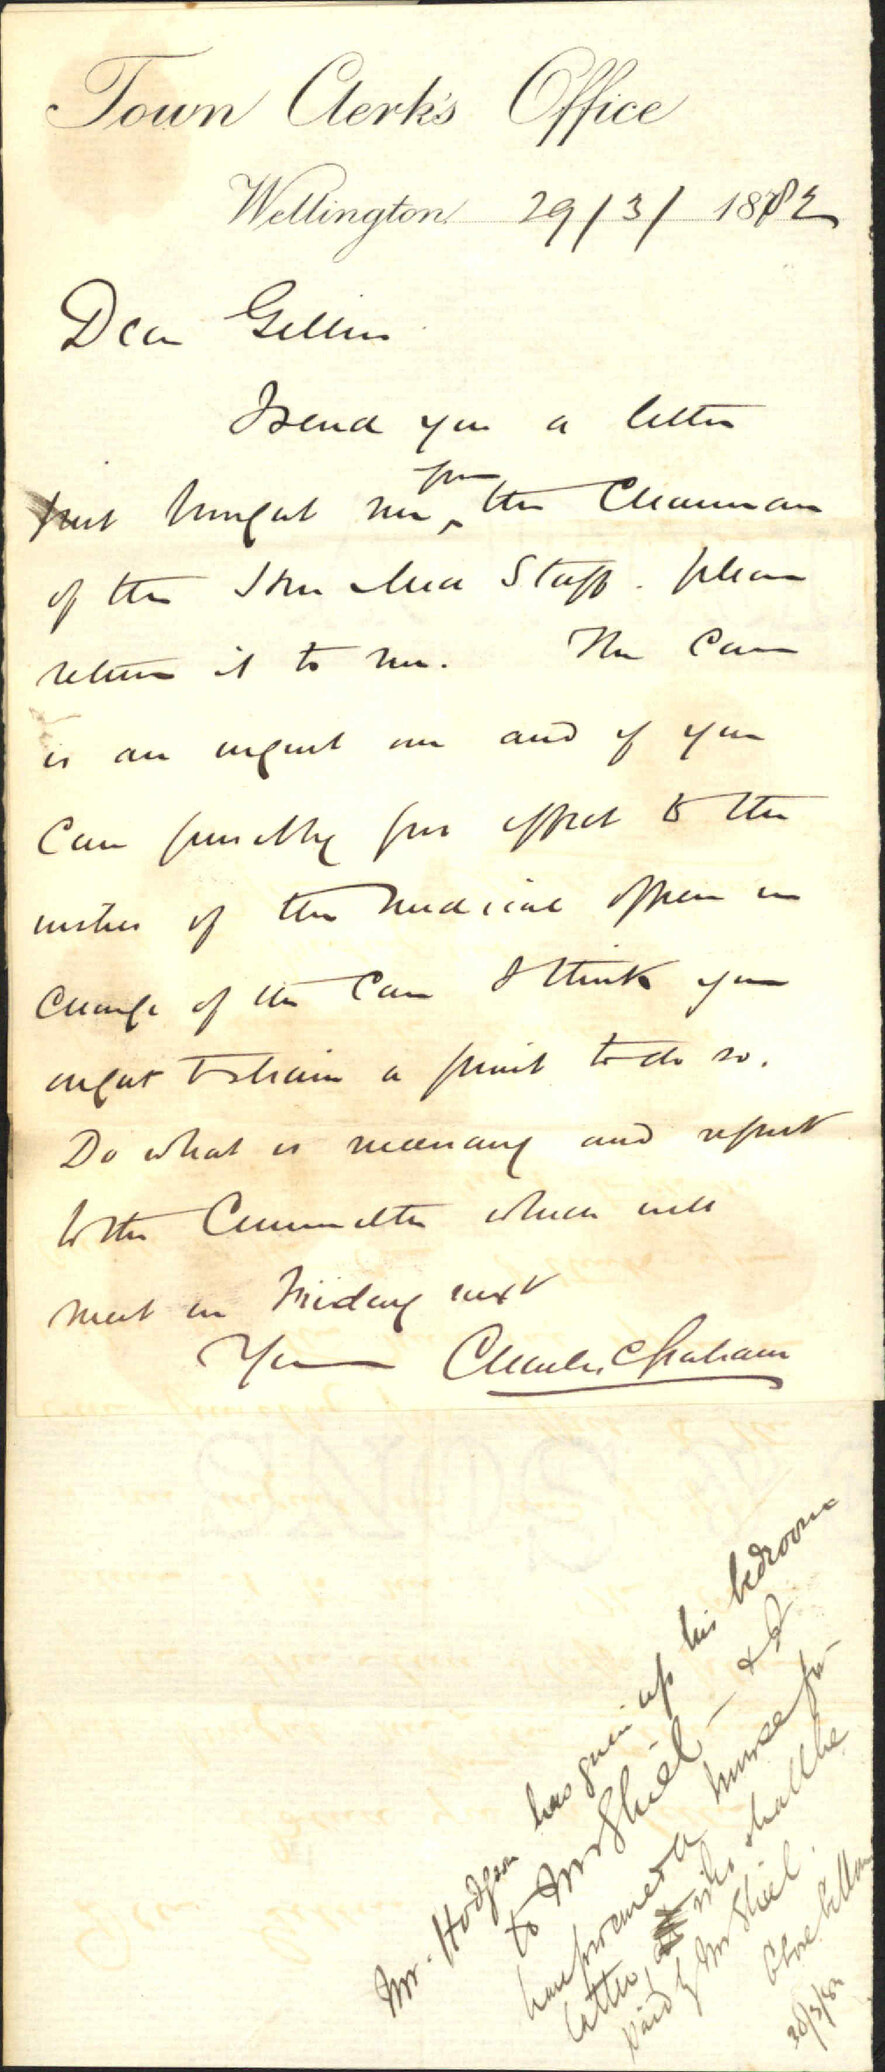 Town Clerk's Office
Wellington 29/3/ 1882
Dear Gillon
I send you a letter
just brought me from the Chairman
of the Hon Med Staff. please
return it to me. The Case
is an urgent one and if you
Can possibly give effect to the
wishes of the Medical officer in
Charge of the Case I think you
ought to strain a point to do so.
Do what is necessary and report
to the Committee which will
meet on Friday next
Yours Charles C Graham
Mr. Hodgson has given up his bedroom
to Mr Shiel — & I
have procured a nurse for
latter, who shall be
paid by Mr Shiel.
Gillon
30/3/82